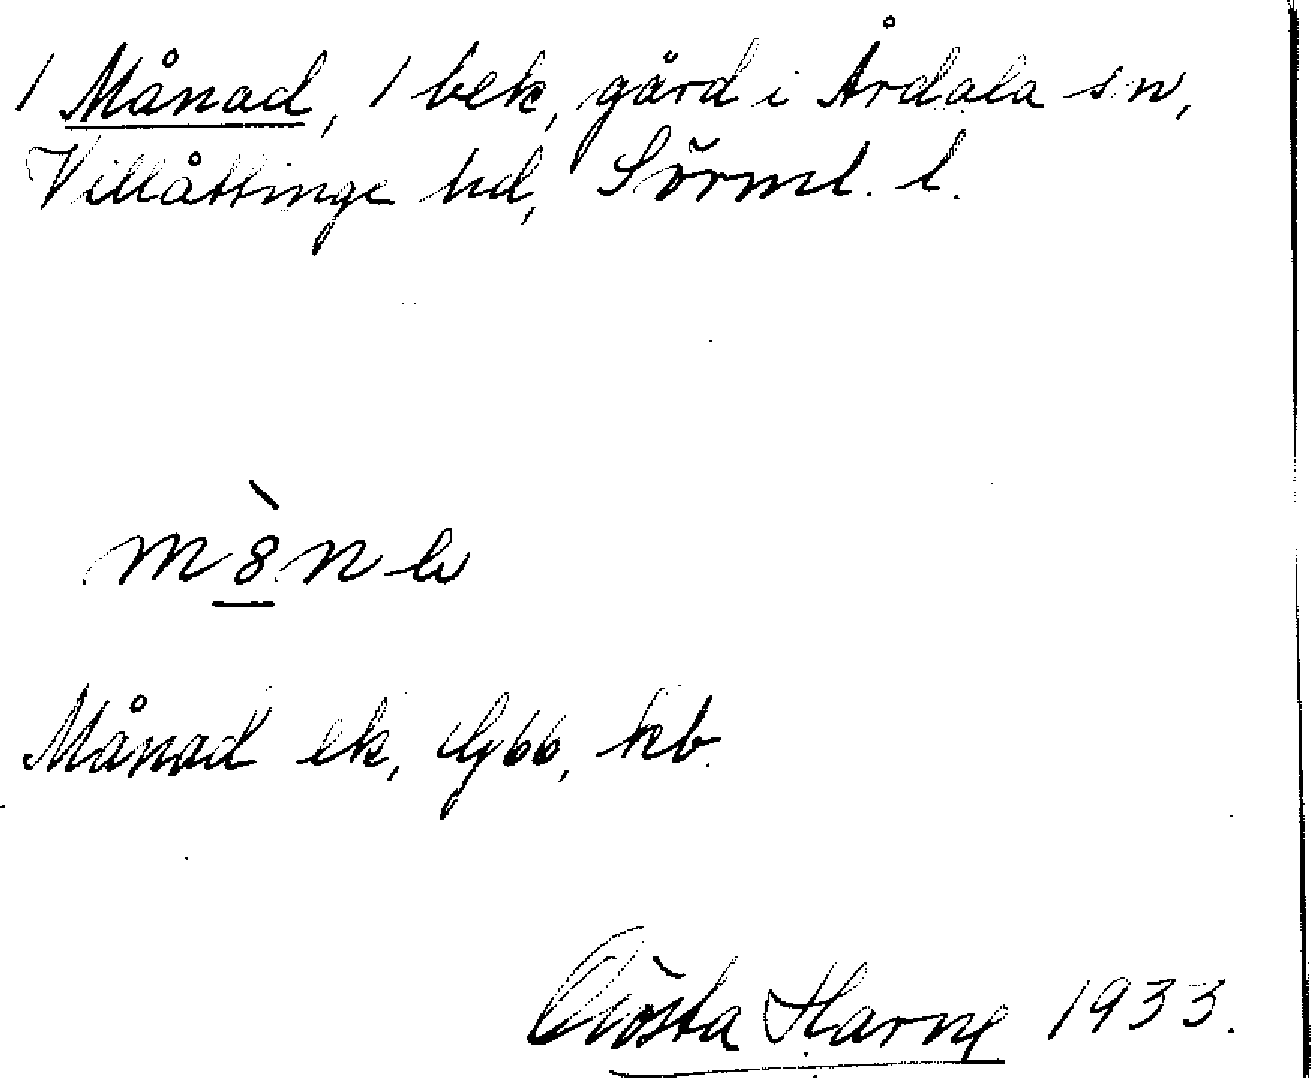 / Månad, / bek, gård i Årdala sn,
Villåttinge hd, Sörml. l.
Månad ek, kb.
Gösta Harne 1933.